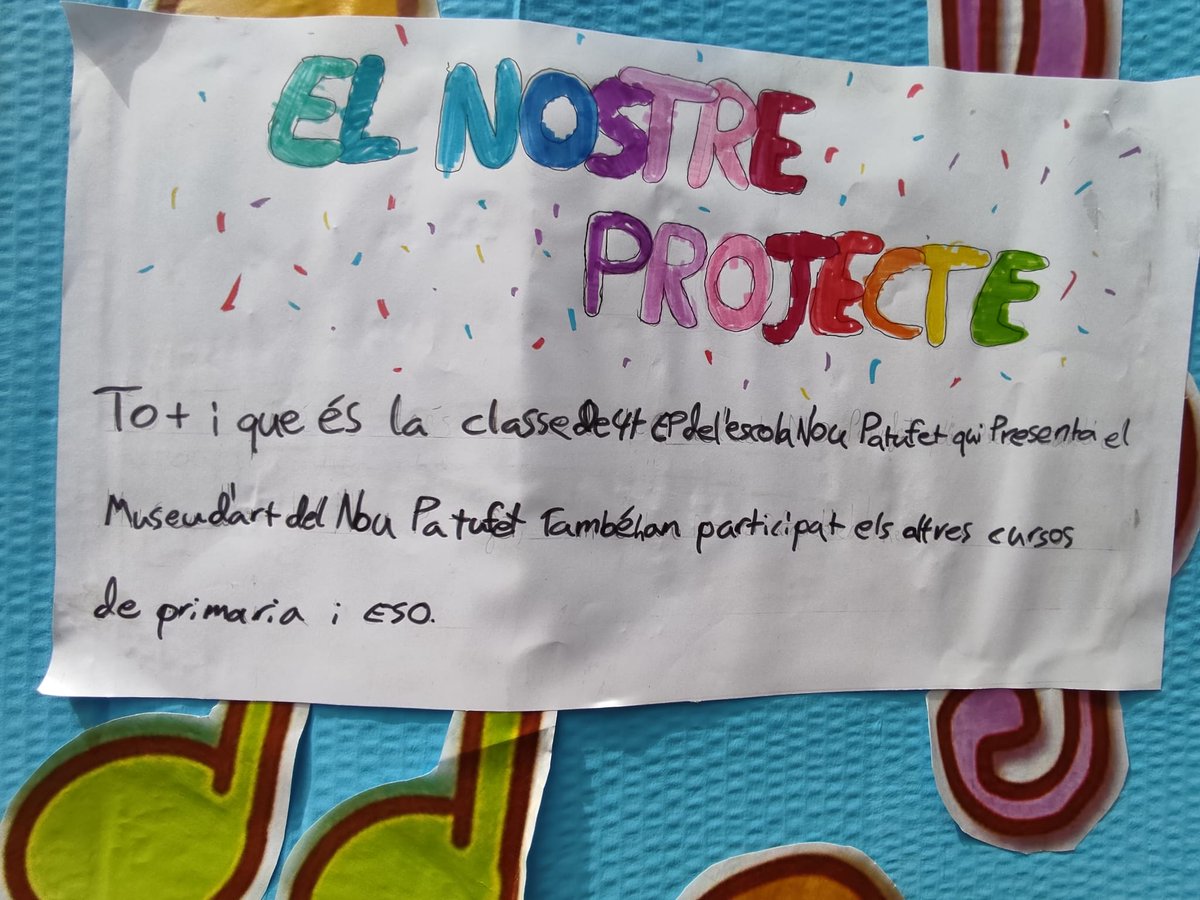 EL NOSTRE
PROJECTE
Tot i que és la classe de 4t EP del'escola Nou Patufet qui Presenta el
Museu d'art del Nou Patufet També han participat els altres cursos
de primaria i ESO.